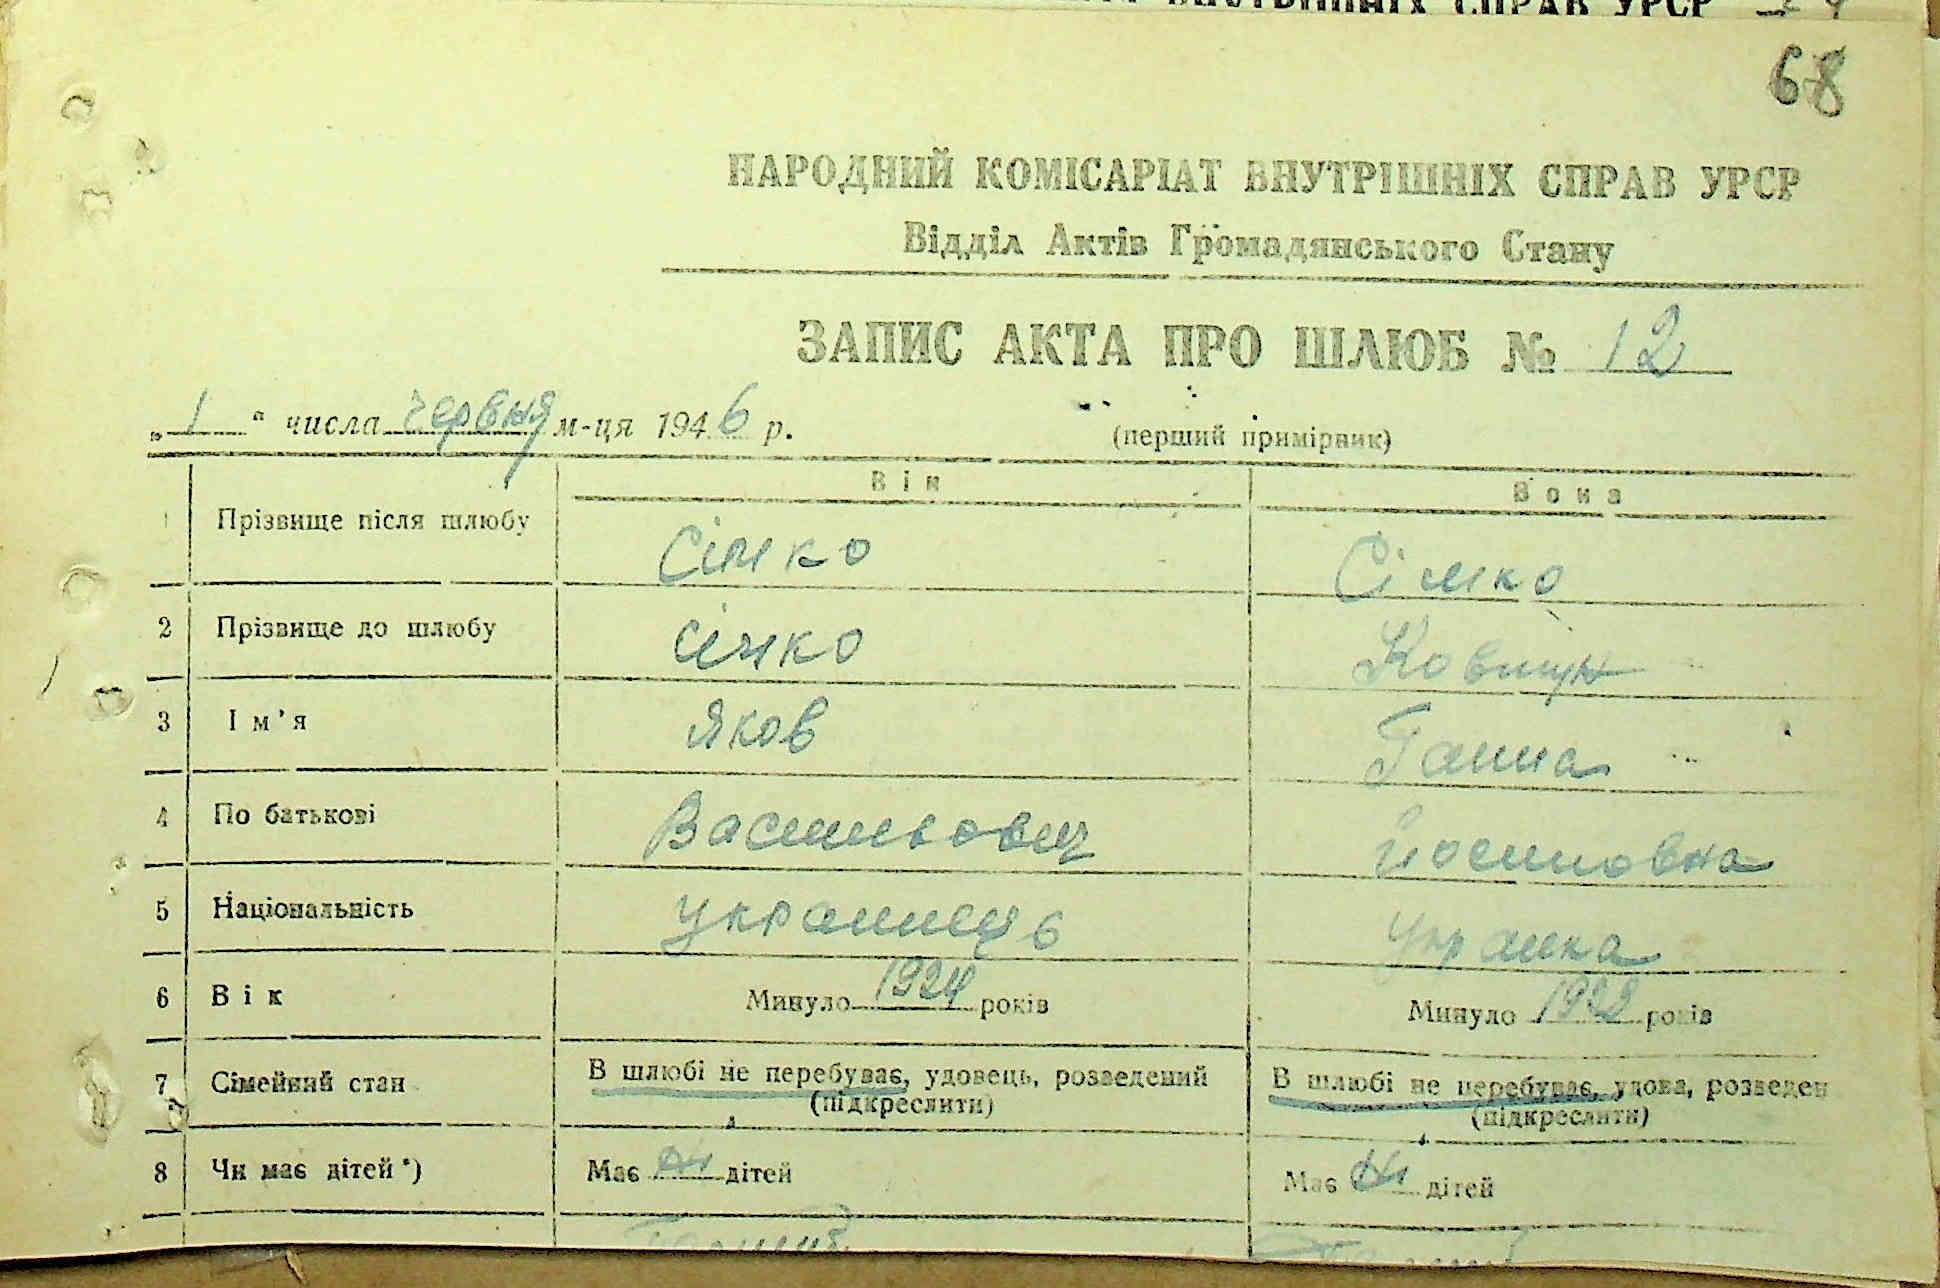 ВНУТРІШНІХ СПРАВ УРСР
68
НАРОДНИЙ КОМІСАРІАТ ВНУТРІШНІХ СПРАВ УРСР
Відділ Актів Громадянського Стану
ЗАПИС АКТА ПРО ШЛЮБ № 12
„ 1 “ числа червня м-ця 1946 р. (перший примірник)
Він Вона
1 Прізвище після шлюбу Січко Січко
2 Прізвище до шлюбу Січко Ковтун
3 Ім’я Яков Ганна
4 По батькові Васильович Йосиповна
5 Національність українець Українка
6 Вік Минуло 1924 років Минуло 1922 років
7 Сімейний стан В шлюбі не перебуває, удовець, розведений В шлюбі не перебуває, удова, розведен
(підкреслити) (підкреслити)
8 Чи має дітей*) Має ні дітей Має ні дітей